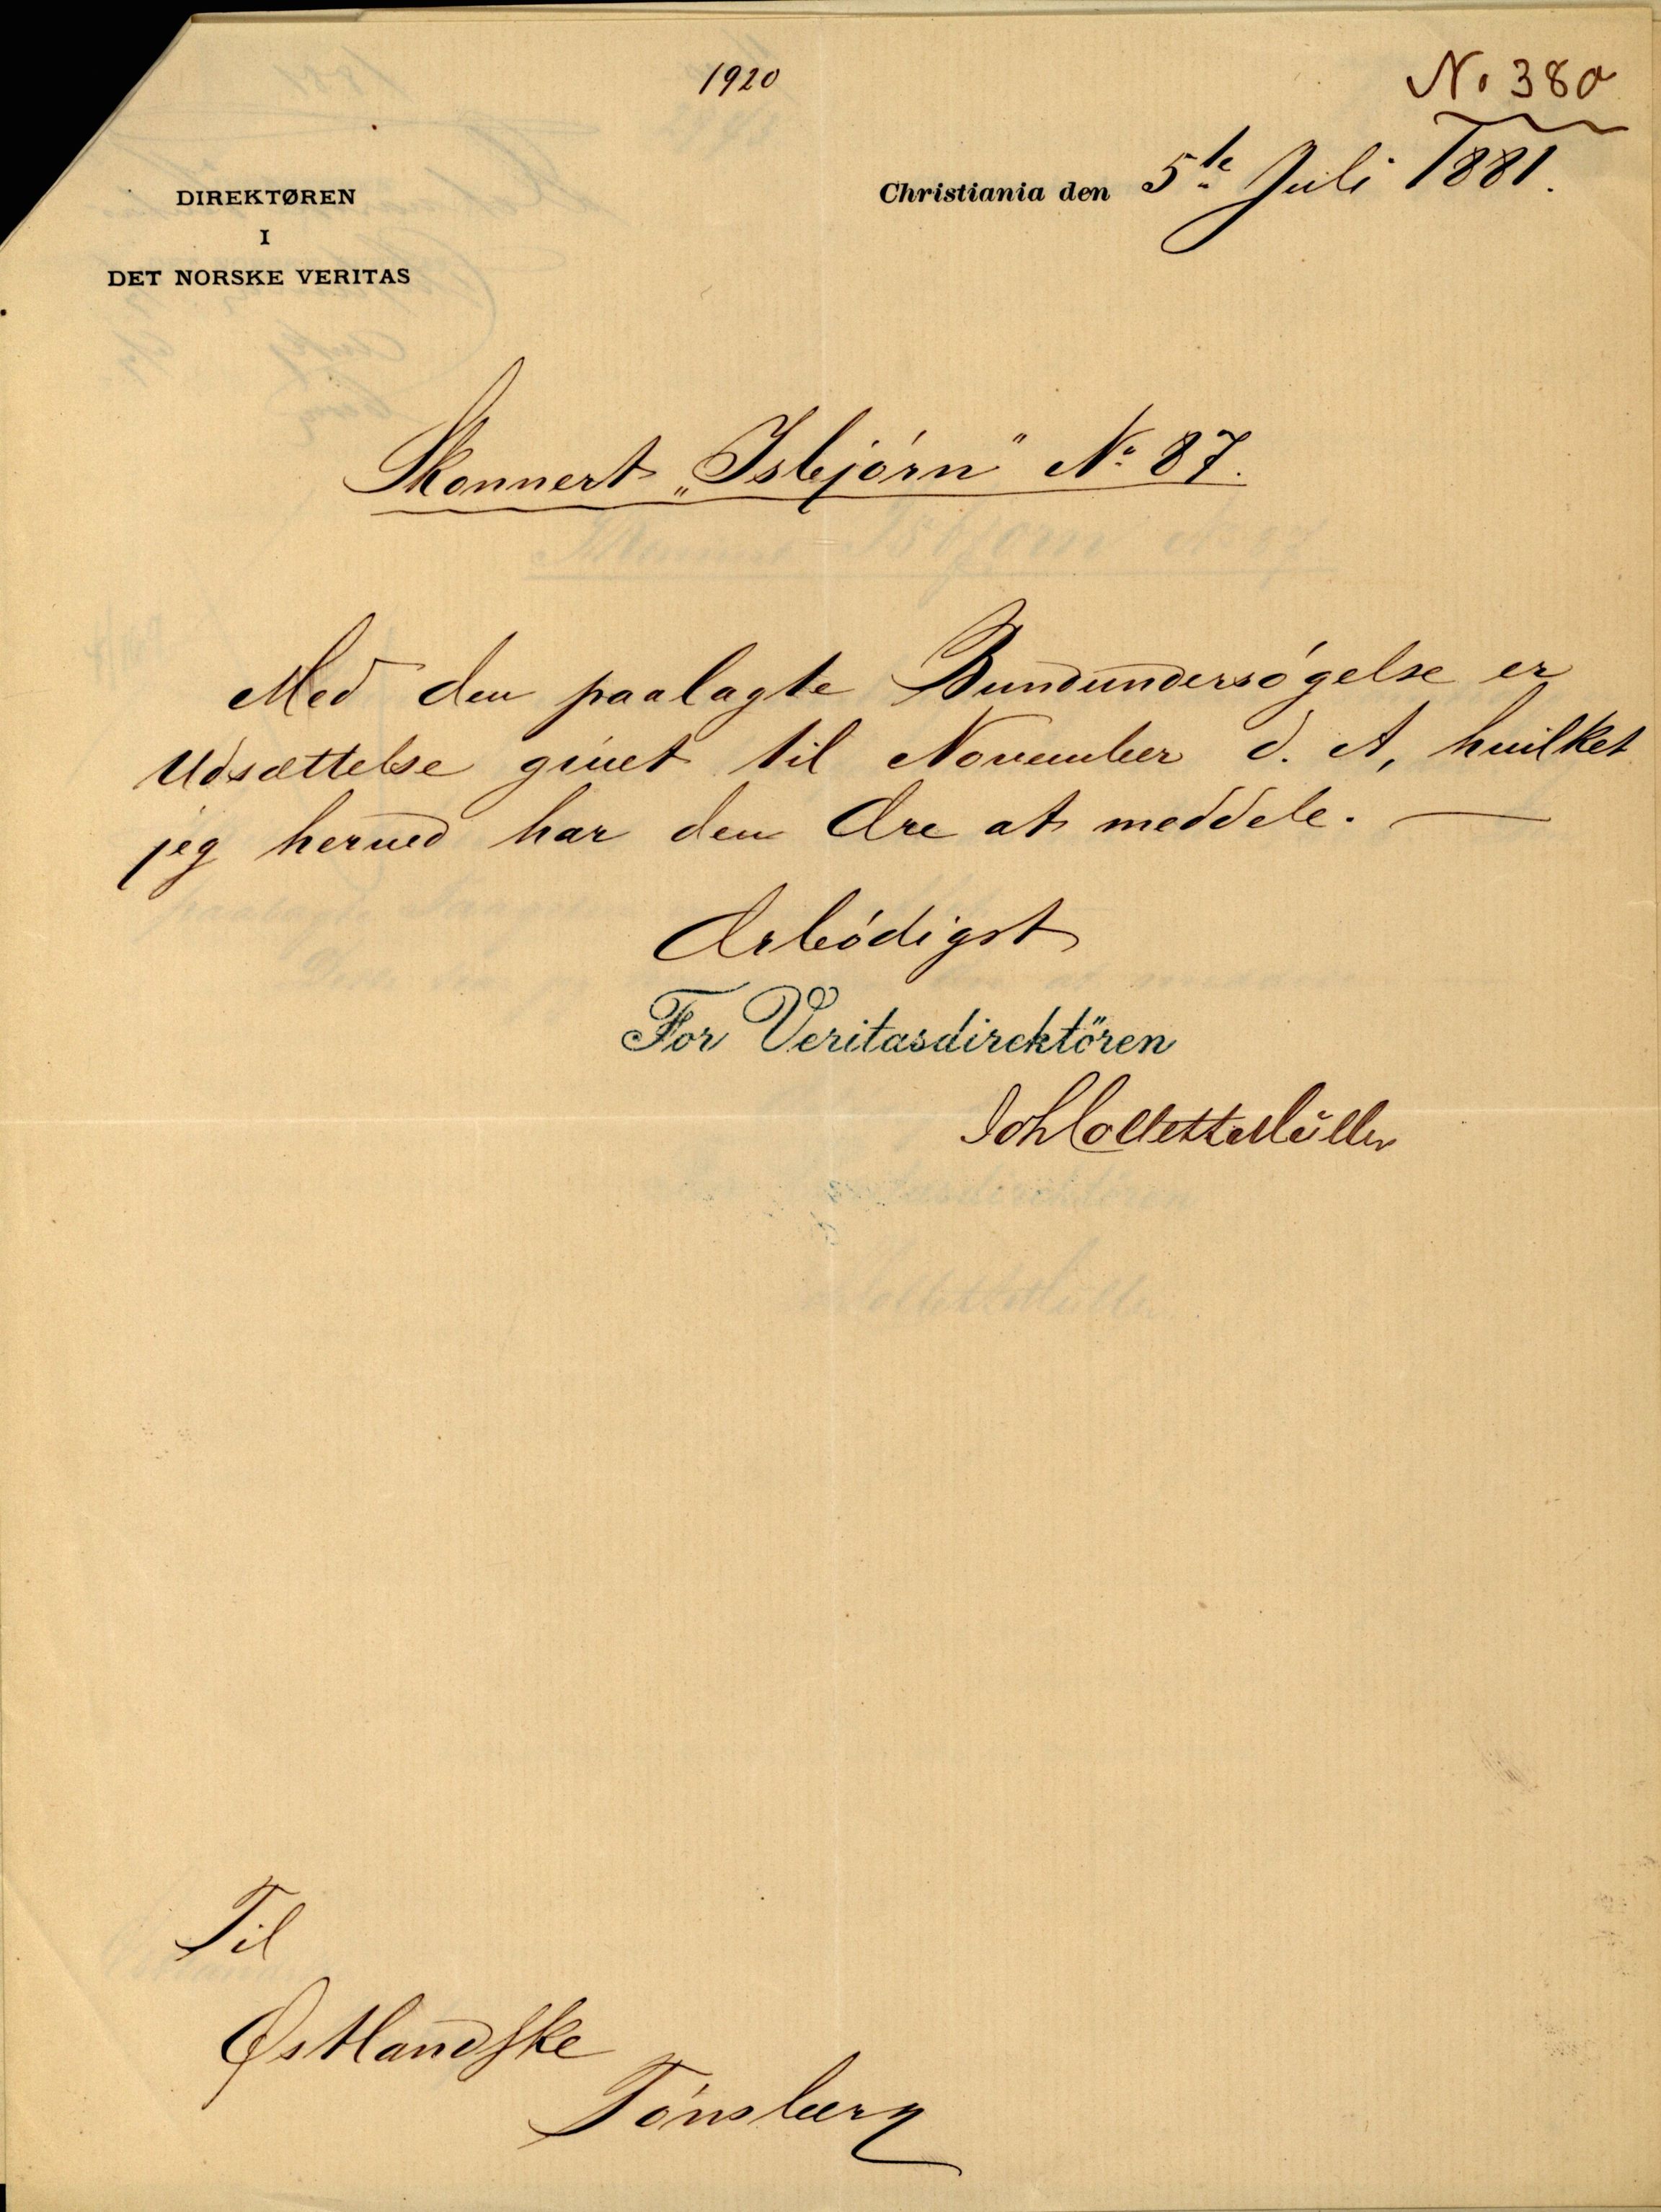 1920
No 380
DIREKTØREN
I
DET NORSKE VERITAS
Christiania den 5te Juli 1881.
Skonnert „Isbjörn" No 87.
Med den paalagte Bundundersögelse er
Udsættelse givet til November d. A, hvilket
jeg herved har den Ære at meddele. —
Ærbödigst
For Veritasdirektören
Joh Collett Müller
Til
Østlandske
Tönsberg